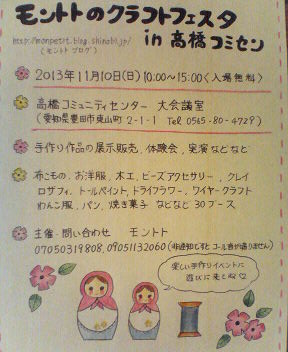 モントトのクラフトフェスタ
http://monpetit.blog.shinobi.jp/
(モントト ブログ)
in 高橋コミセン
2013年11月10日(日) 10:00〜15:00 〈入場無料〉
高橋コミュニティセンター 大会議室
(愛知県豊田市東山町 2-1-1 Tel 0565-80-4729)
手作り作品の展示販売、体験会、実演などなど
布こもの、お洋服、木工、ビーズアクセサリー、クレイ
ロサフィ、トールペイント、ドライフラワー、ワイヤークラフト
わんこ服、パン、焼き菓子 などなど 30ブース
主催・問い合わせ モントト
07050319808, 09051132060 (非通知ですとコール音が鳴りません)
楽しい手作りイベントに
遊びに来てね♡